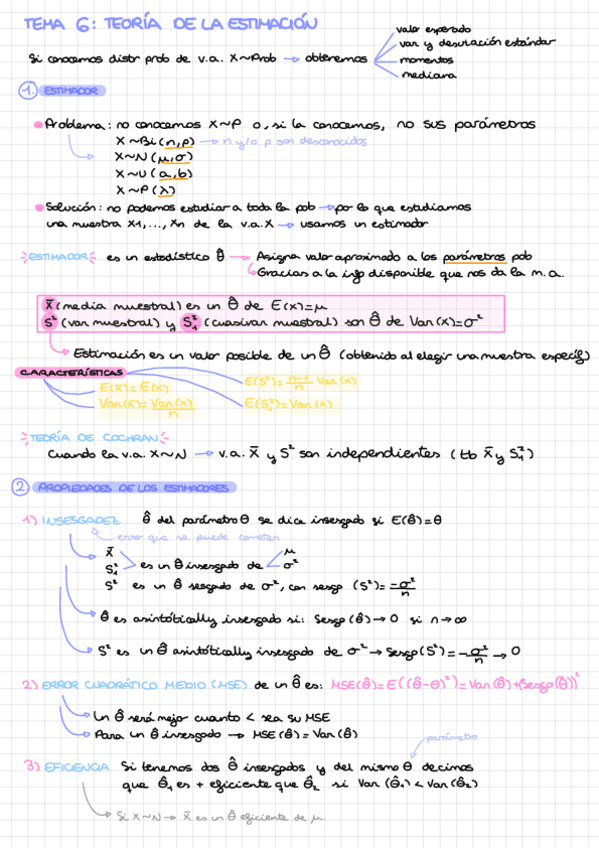 TEMA 6: TEORÍA DE LA ESTIMACIÓN
Si conocemos distr prob de v.a. X~Prob → obtenemos
valor esperado
var y desviación estándar
momentos
mediana
1. ESTIMADOR
Problema: no conocemos X~P o, si la conocemos, no sus parámetros
X~Bi(n,p) → n y/o p son desconocidos
X~N(μ,σ)
X~U(a,b)
X~P(λ)
Solución: no podemos estudiar a toda la pob → por lo que estudiamos
una muestra X1,...,Xn de la v.a.X → usamos un estimador
ESTIMADOR es un estadístico θ̂ → Asigna valor aproximado a los parámetros pob
Gracias a la info disponible que nos da la m.a.
X̄ (media muestral) es un θ̂ de E(X)=μ
S² (var muestral) y S₁² (cuasivar muestral) son θ̂ de Var(X)=σ²
Estimación es un valor posible de un θ̂ (obtenido al elegir una muestra específ)
CARACTERÍSTICAS
E(X̄)=E(X)
E(S²)=n-1/n Var(X)
Var(X̄)=Var(X)/n
E(S₁²)=Var(X)
TEORÍA DE COCHRAN
Cuando la v.a. X~N → v.a. X̄ y S² son independientes (tb X̄ y S₁²)
2 PROPIEDADES DE LOS ESTIMADORES
1) INSESGADEZ θ̂ del parámetro θ se dice insesgado si E(θ̂)=θ
error que se puede cometer
X̄ μ
S₁² > es un θ̂ insesgado de < σ²
S² es un θ̂ sesgado de σ², con sesgo (S²)=-σ²/n
θ̂ es asintótically insesgado si: Sesgo(θ̂)→0 si n→∞
S² es un θ̂ asintótically insesgado de σ² → Sesgo(S²)=-σ²/n → 0
2) ERROR CUADRÁTICO MEDIO (MSE) de un θ̂ es: MSE(θ̂)=E((θ̂-θ)²)=Var(θ̂)+(Sesgo(θ̂))²
Un θ̂ será mejor cuanto < sea su MSE
Para un θ̂ insesgado → MSE(θ̂)=Var(θ̂)
parámetro
3) EFICIENCIA Si tenemos dos θ̂ insesgados y del mismo θ decimos
que θ̂₁ es + eficiente que θ̂₂ si Var(θ̂₁)<Var(θ̂₂)
Si X~N → X̄ es un θ̂ eficiente de μ.